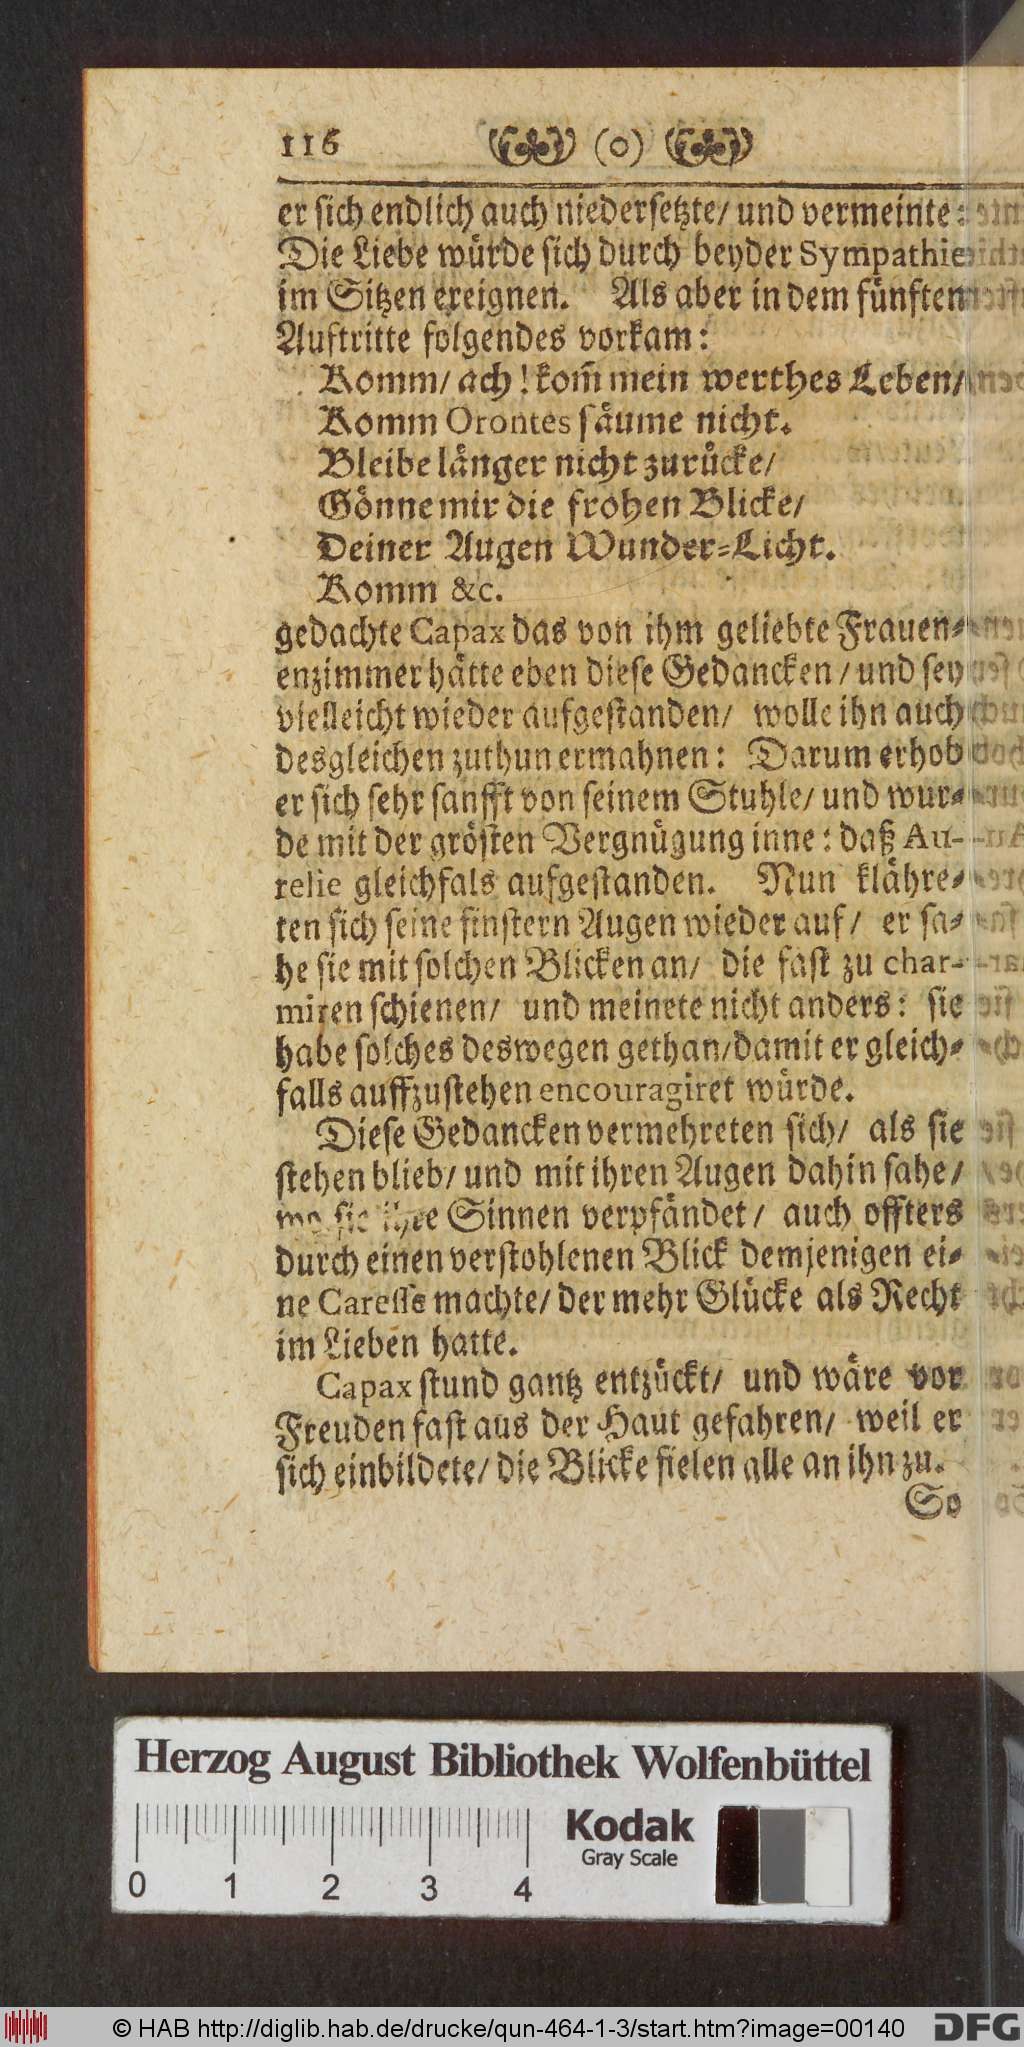 116 (o)
er sich endlich auch niedersetzte/ und vermeinte:
Die Liebe würde sich durch beyder Sympathie
im Sitzen ereignen. Als aber in dem fünften
Auftritte folgendes vorkam:
Komm/ ach! kom̃ mein werthes Leben/
Komm Orontes säume nicht.
Bleibe länger nicht zurücke/
Gönne mir die frohen Blicke/
Deiner Augen Wunder-Licht.
Komm &c.
gedachte Capax das von ihm geliebte Frauen-
enzimmer hätte eben diese Gedancken/ und sey
vielleicht wieder aufgestanden/ wolle ihn auch
desgleichen zuthun ermahnen: Darum erhob
er sich sehr sanfft von seinem Stuhle/ und wur-
de mit der grösten Vergnügung inne: daß Au-
relie gleichfals aufgestanden. Nun klähre-
ten sich seine finstern Augen wieder auf/ er sa-
he sie mit solchen Blicken an/ die fast zu char-
miren schienen/ und meinete nicht anders: sie
habe solches deswegen gethan/ damit er gleich-
falls auffzustehen encouragiret würde.
Diese Gedancken vermehreten sich/ als sie
stehen blieb/ und mit ihren Augen dahin sahe/
wo sie ihre Sinnen verpfändet/ auch offters
durch einen verstohlenen Blick demjenigen ei-
ne Caresse machte/ der mehr Glücke als Recht
im Lieben hatte.
Capax stund gantz entzückt/ und wäre vor
Freuden fast aus der Haut gefahren/ weil er
sich einbildete/ die Blicke fielen alle an ihn zu.
So
Herzog August Bibliothek Wolfenbüttel
Kodak
Gray Scale
0 1 2 3 4
© HAB http://diglib.hab.de/drucke/qun-464-1-3/start.htm?image=00140 DFG